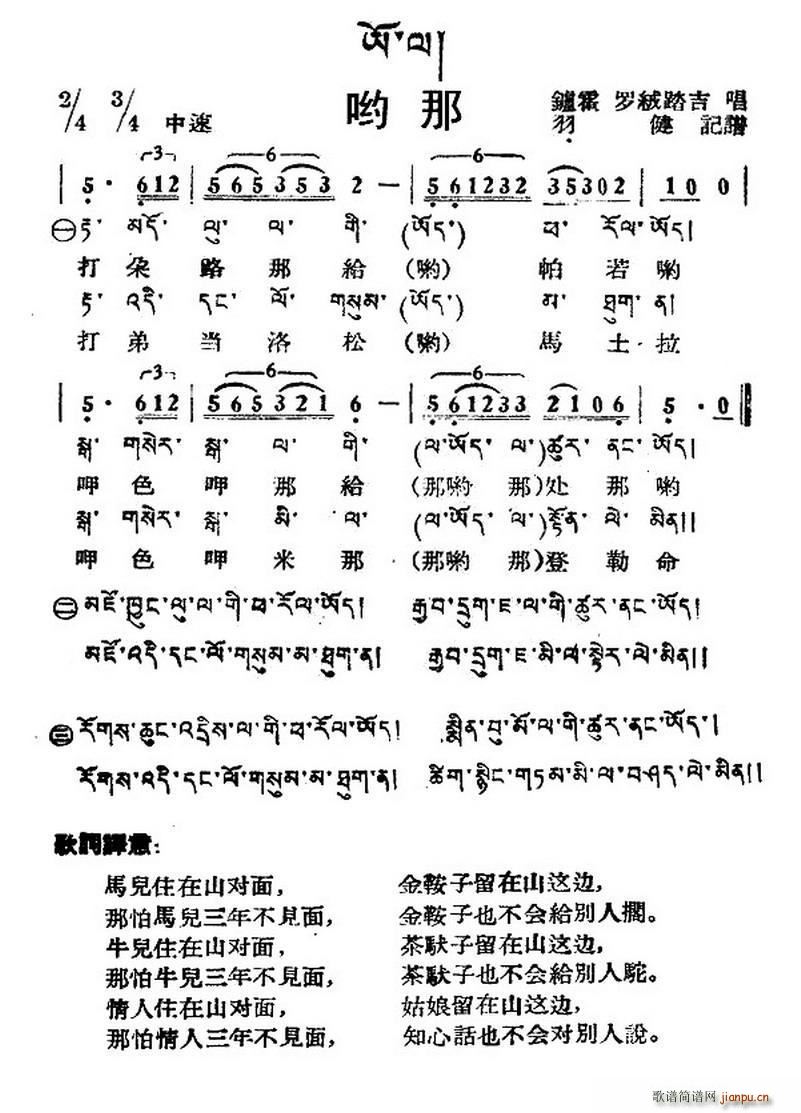 ཨོ་ལ།
哟那
2/4 3/4 中速
鑪霍 罗絨踏吉 唱
羽健 記譜
5· 612 565353 2 — 561232 35302 100
㊀ རྟ་ མདོ་ ལུ་ ལ་ གི་ (ཨོད་) ཕ་ རོལ་ཨོད།
打朶路那給(喲) 帕若喲
རྟ་ འདི་ དང་ ལོ་ གསུམ་ (ཨོད་) མ་ ཐུག་ ན།
打弟当洛松(喲) 馬土拉
5· 612 565321 6 — 561233 2106 5·0
སྒ་ གསེར་ སྒ་ ལ་ གི་ (ལ་ཨོད་ ལ་) ཚུར་ ནང་ ཨོད།
呷色呷那給(那喲那)处那喲
སྒ་ གསེར་ སྒ་ མི་ ལ་ (ལ་ཨོད་ ལ་) སྟོན་ ལེ་ མིན།།
呷色呷米那(那喲那)登勒命
㊁ མཛོ་ཁྱུང་ལུ་ལ་གི་ཕ་རོལ་ཨོད། རྒྱབ་དྲུག་ཇ་ལ་གི་ཚུར་ནང་ཨོད།
མཛོ་འདི་དང་ལོ་གསུམ་མ་ཐུག་ན། རྒྱབ་དྲུག་ཇ་མི་ལ་སྟེར་ལེ་མིན།།
㊂ རོགས་ཆུང་འདྲིས་ལ་གི་ཕ་རོལ་ཨོད། སྨིན་བུ་མོ་ལ་གི་ཚུར་ནང་ཨོད་།
རོགས་འདི་དང་ལོ་གསུམ་མ་ཐུག་ན། ཚིག་སྙིང་གཏམ་མི་ལ་བཤད་ལེ་མིན།།
歌詞譯意：
馬兒住在山对面， 金鞍子留在山这边，
那怕馬兒三年不見面， 金鞍子也不会給別人擱。
牛兒住在山对面， 茶馱子留在山这边，
那怕牛兒三年不見面， 茶馱子也不会給別人駝。
情人住在山对面， 姑娘留在山这边，
那怕情人三年不見面， 知心話也不会对別人說。
歌谱简谱网 jianpu.cn